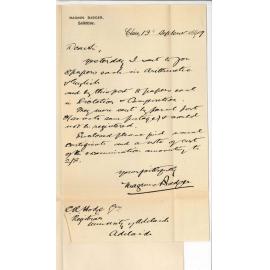 MAGNUS BADGER,
Solicitor.
Clare, 13 September
Dear Sir,
Yesterday I sent to you
8 papers each in Arithmetic
English
and by this post 8 papers each
in Dictation & Composition.
They were sent by parcel post
would
not be registered.
Enclosed please find usual
certificate and a note of cost
of the examination amounting to
Yours faithfully
Magnus Badger
C. R. Hodge Esq
Registrar
University of Adelaide
Adelaide